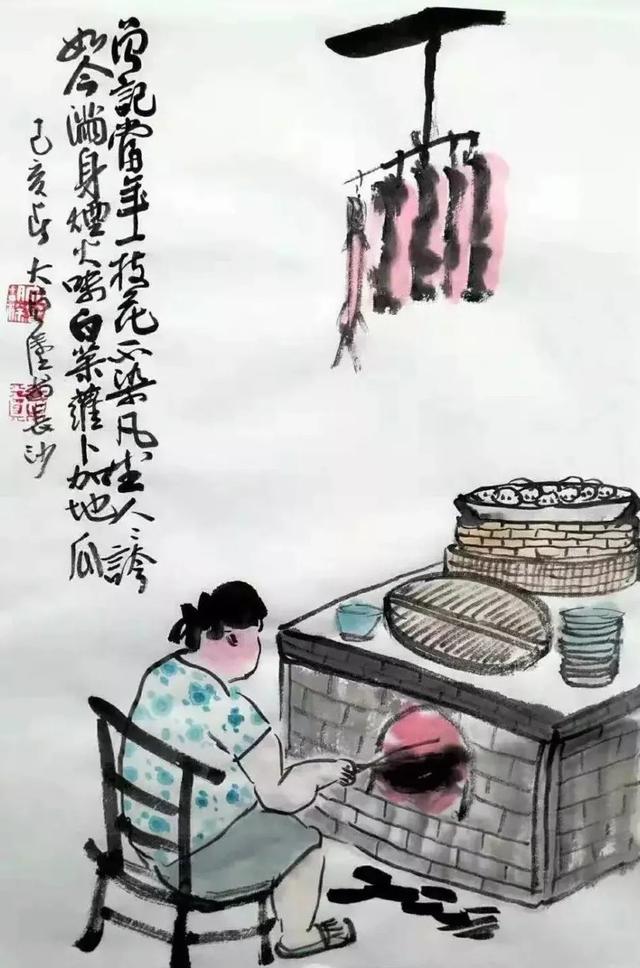 曾記當年一枝花不染凡尘人々誇
如今滿身煙火味白菜蘿卜加地瓜
己亥 大 長沙